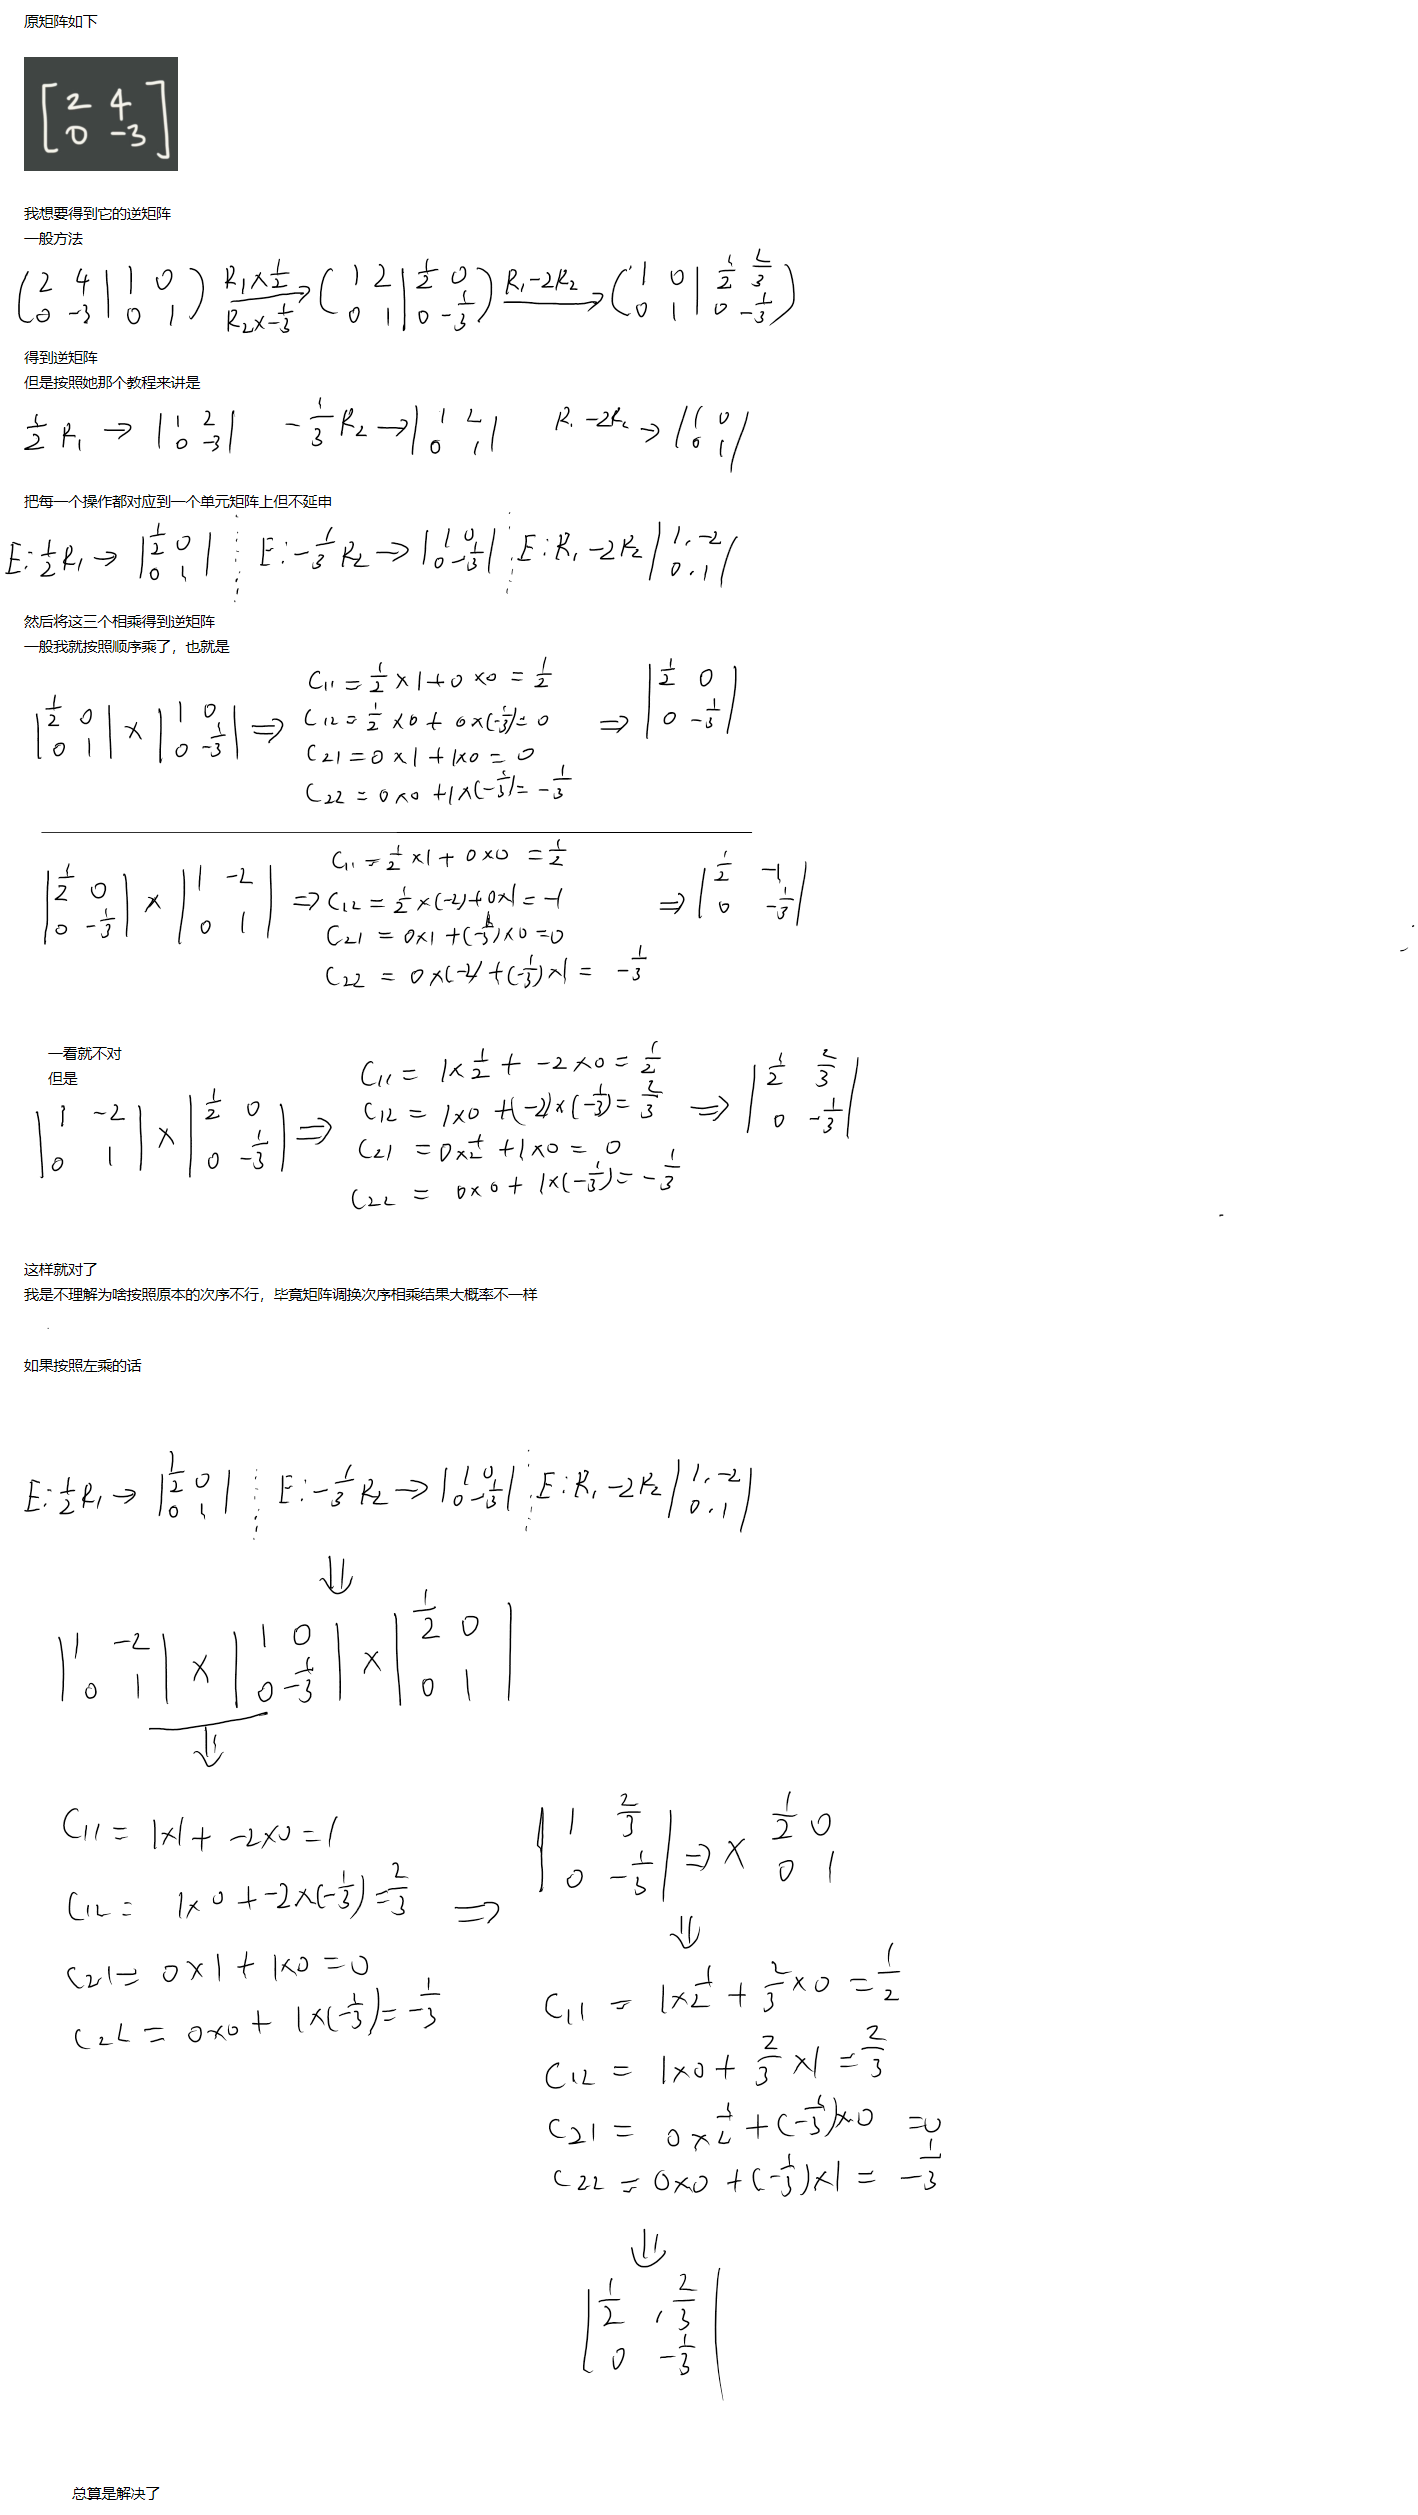 原矩阵如下
[2 4
0 -3]
我想要得到它的逆矩阵
一般方法
(2 4 | 1 0
0 -3 | 0 1) R₁×1/2 R₂×-1/3 → (1 2 | 1/2 0
0 1 | 0 -1/3) R₁-2R₂ → (1 0 | 1/2 2/3
0 1 | 0 -1/3)
得到逆矩阵
但是按照她那个教程来讲是
1/2 R₁ → |1 2
0 -3| -1/3 R₂ → |1 2
0 1| R₁-2R₂ → |1 0
0 1|
把每一个操作都对应到一个单元矩阵上但不延申
E: 1/2 R₁ → |1/2 0
0 1| E: -1/3 R₂ → |1 0
0 -1/3| E: R₁-2R₂ |1, -2
0, 1|
然后将这三个相乘得到逆矩阵
一般我就按照顺序乘了，也就是
|1/2 0
0 1| × |1 0
0 -1/3| ⇒
C₁₁ = 1/2×1+0×0 = 1/2
C₁₂ = 1/2×0+0×(-1/3) = 0
C₂₁ = 0×1+1×0 = 0
C₂₂ = 0×0+1×(-1/3) = -1/3
⇒ |1/2 0
0 -1/3|
|1/2 0
0 -1/3| × |1 -2
0 1| ⇒
C₁₁ = 1/2×1+0×0 = 1/2
C₁₂ = 1/2×(-2)+0×1 = -1
C₂₁ = 0×1+(-1/3)×0 = 0
C₂₂ = 0×(-2)+(-1/3)×1 = -1/3
⇒ |1/2 -1
0 -1/3|
一看就不对
但是
|1 -2
0 1| × |1/2 0
0 -1/3| ⇒
C₁₁ = 1×1/2+-2×0 = 1/2
C₁₂ = 1×0+(-2)×(-1/3) = 2/3
C₂₁ = 0×1/2+1×0 = 0
C₂₂ = 0×0+1×(-1/3) = -1/3
⇒ |1/2 2/3
0 -1/3|
这样就对了
我是不理解为啥按照原本的次序不行，毕竟矩阵调换次序相乘结果大概率不一样
如果按照左乘的话
E: 1/2 R₁ → |1/2 0
0 1| E: -1/3 R₂ → |1 0
0 -1/3| E: R₁-2R₂ |1, -2
0, 1|
⇓
|1 -2
0 1| × |1 0
0 -1/3| × |1/2 0
0 1|
⇓
C₁₁ = 1×1+-2×0 = 1
C₁₂ = 1×0+-2×(-1/3) = 2/3
C₂₁ = 0×1+1×0 = 0
C₂₂ = 0×0+1×(-1/3) = -1/3
⇒ |1 2/3
0 -1/3| ⇒ × 1/2 0
0 1
⇓
C₁₁ = 1×1/2+2/3×0 = 1/2
C₁₂ = 1×0+2/3×1 = 2/3
C₂₁ = 0×1/2+(-1/3)×0 = 0
C₂₂ = 0×0+(-1/3)×1 = -1/3
⇓
|1/2 , 2/3
0 -1/3|
总算是解决了